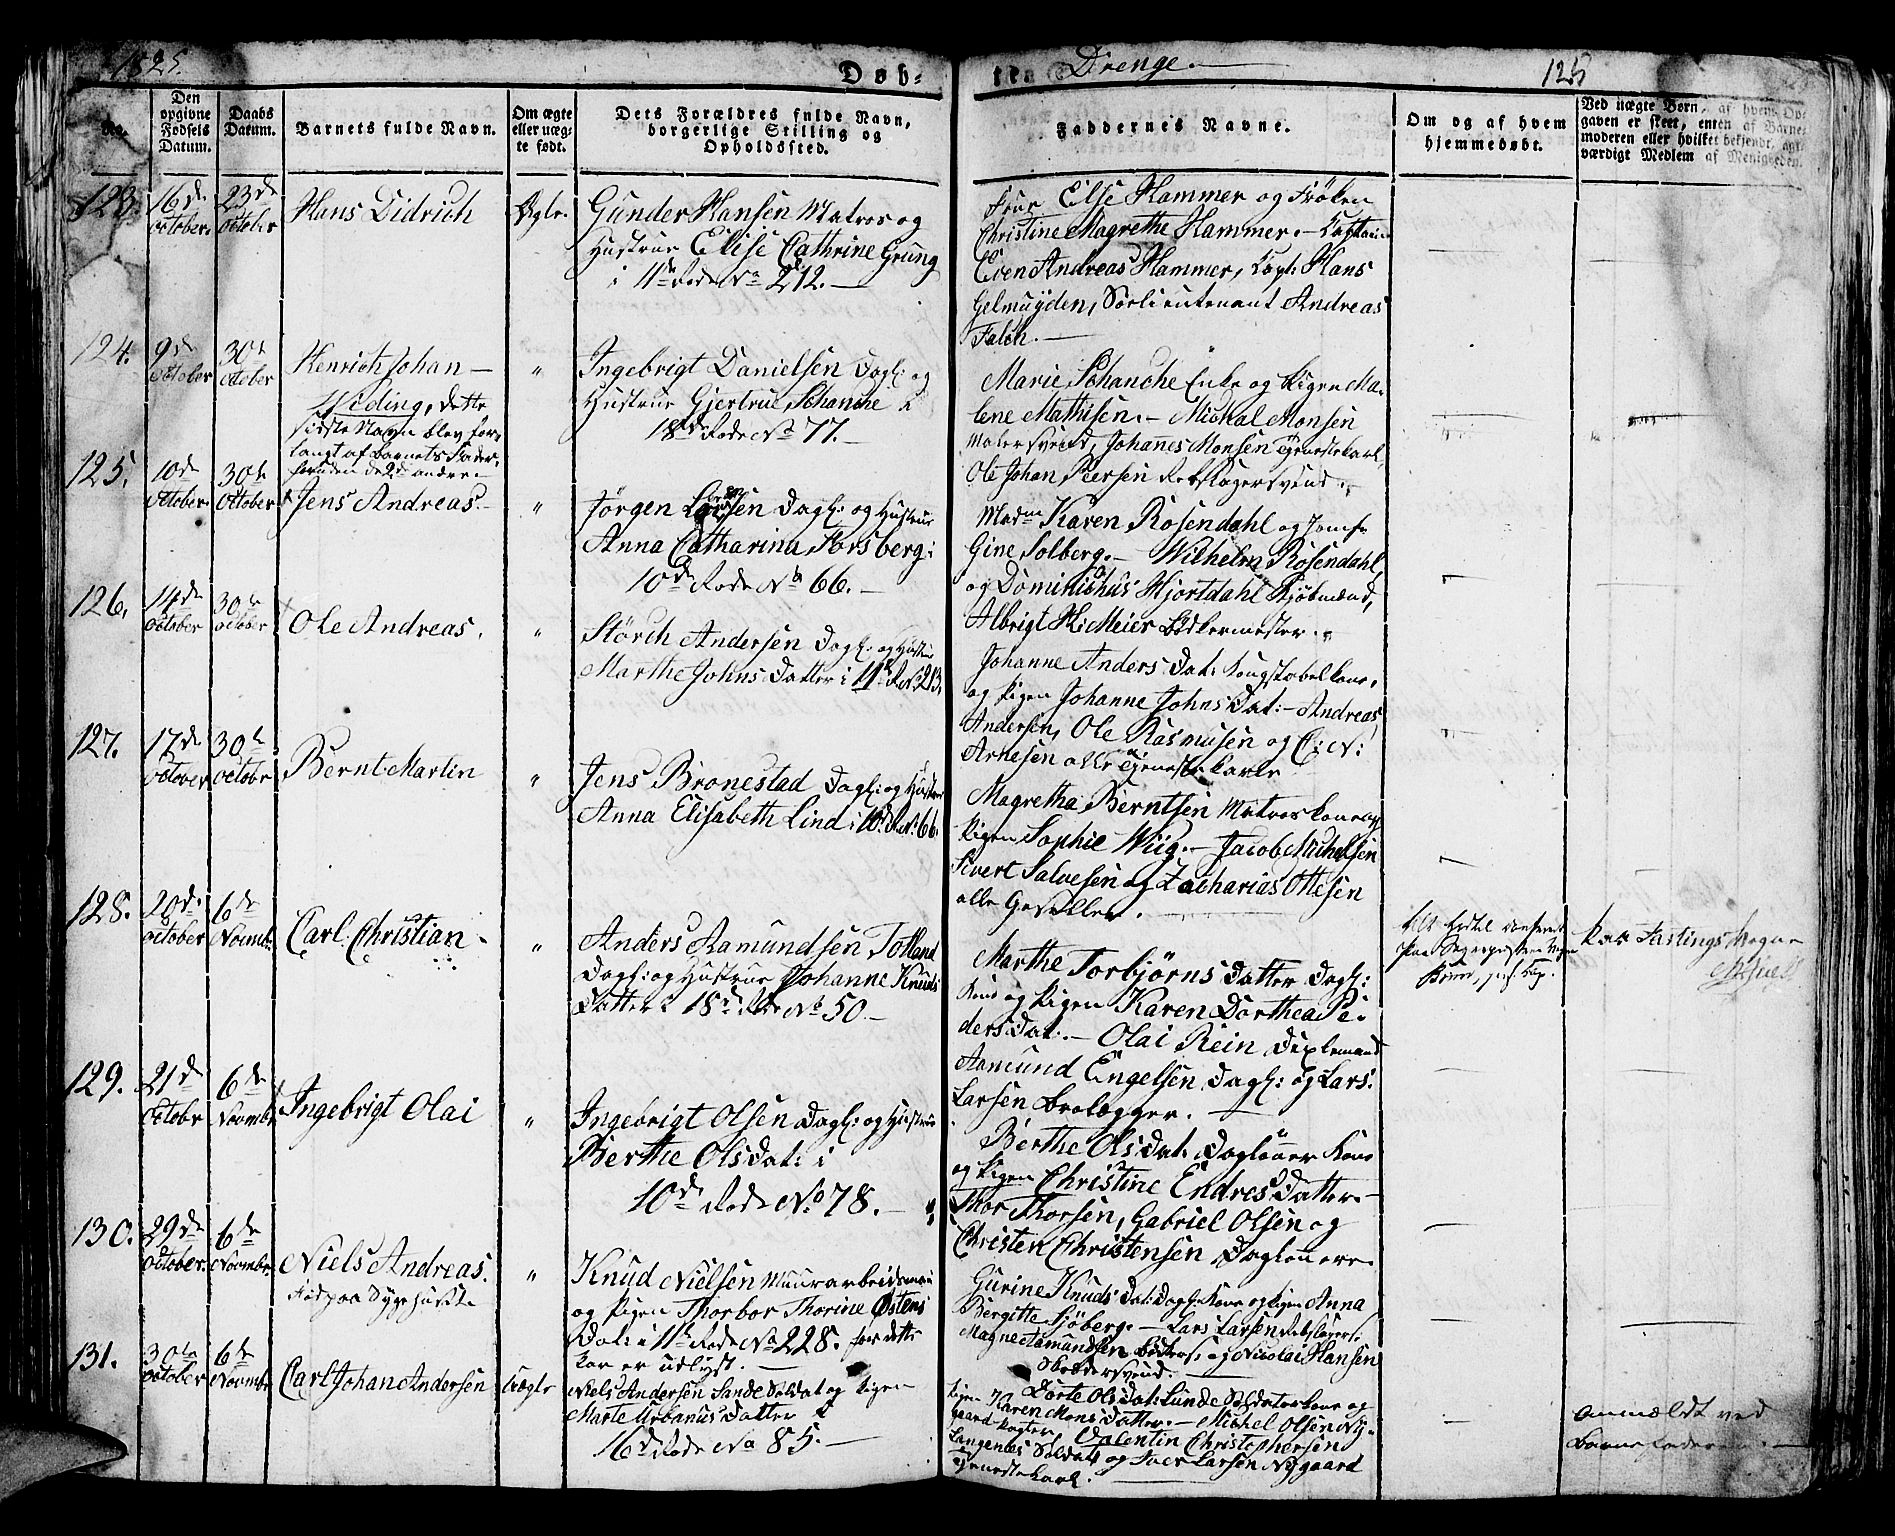 1825.
Døb-
te
Drenge.
125
No.
Den opgivne Fødsels Datum.
Daabs Datum.
Barnets fulde Navn.
Om ægte eller uæg-
te født.
Dets Forældres fulde Navn, borgerlige Stilling og Opholdssted.
Faddernes Navne.
Om og af hvem hjemmedøbt.
Ved uægte Børn, af hvem Op-
gaven er skeet, enten af Barne-
moderen eller hvilket bekjendt, agt-
værdigt Medlem af Menigheden.
123.
16de October.
23de October
Hans Didrich
Ægte.
Gunder Hansen Matros og
Hustrue Elise Cathrine Grung
i 11te Rode No 212.
Frue Else Hammer og Frøken
Christine Magrethe Hammer. - Captain
Even Andreas Hammer, Capt: Hans
Gelmuyden, Søelieutenant Andreas
Falch.
124.
9de October
30te October
Henrich Johan
Widing, dette
sidste Navn blev for-
langt af Barnets Fader
foruden de 2de andre.
"
Ingebrigt Danielsen Dagl: og
Hustrue Gjertrue Schanche i
18de Rode No 77.
Marie Schanche Enke og Pigen Ma-
lene Mathisen. - Michal Monsen
Malersvend, Johannes Monsen Tjenestekarl,
Ole Johan Peersen Rebslagersvend.
125.
10de October.
30te October
Jens Andreas.
"
Jørgen Larsen Dagl: og Hustrue
Anna Catharina Forsberg i
10de Rode No 66.
Madm Karen Rosendahl og Jomfr
Gine Solberg. - Wilhelm Rosendahl
og Dominichus Hjortdahl Kjøbmænd,
Albrigt H. Meier Bødkermester.
126.
14de October
30te October
Ole Andreas.
"
Størch Andersen Dagl: og Hustrue
Marthe Johns Datter i 11te R. No 213.
Johanne Anders Dat: Kongstabelkone,
og Pigen Johanne Johns Dat: - Andreas
Andersen, Ole Rasmusen og C: N:
Arnesen alle Tjenestekarle
127.
17de October
30te October
Bernt Martin
"
Jens Bronestad Dagl: og Hustrue
Anna Elisabeth Lind i 10de R. No 66.
Magretha Berntsen Matroskone og
Pigen Sophie Wiig. - Jacob Michelsen
Sivert Salvesen og Zacharias Ottesen
alle Geseller.
128.
20de October
6de Novembr
Carl Christian.
"
Anders Aamundsen Totland
Dagl: og Hustrue Johanne Knuds
Datter i 18de Rode No 50.
Marthe Torbjørns Datter Dagl:
Kone og Pigen Karen Dorthea Pe-
dersDat. - Olai Rein Dixlemand
Aamund Engelsen Dagl: og Lars
Larsen Brolægger.
129.
21de October
6de Novembr
Ingebrigt Olai
"
Ingebrigt Olsen Dagl: og Hustrue
Berthe OlsDat: i
10de Rode No 78.
Berthe OlsDat: Dagløner Kone
og Pigen Christine Endres Datter
Thor Thorsen, Gabriel Olsen og
Christen Christensen Daglønere.
130.
29de October.
6de Novembr.
Niels Andreas.
Fød paa Sygehuset
"
Knud Nielsen Muurarbeidsman
og Pigen Thorbor Thorine Østens
Dat: i 11te Rode No 228. for dette
Par er udlyst.
Gurine KnudsDat: Dagl: Kone og Pigen Anna
Bergitte Sjøberg. - Lars Larsen Rebslagers:
Magne Aamundsen Bødkers: og Nicolai Hansen
Skrædersvend.
131.
30te October
6de Novembr
Carl Johan Andersen
Uægte
Niels Andersen Sande Soldat og Pigen
Marte Urbanus Datter i
16de Rode No 85.
Dorte OlsDat: Lunde Soldaterkone og
Pigen Karen Mons Datter. - Michel Olsen Ny-
gaard Valentin Christophersen
Langenæs Soldat og Iver Larsen Nygaard
Tjenestekarl.
Anmældt ved
Barnefaderen.